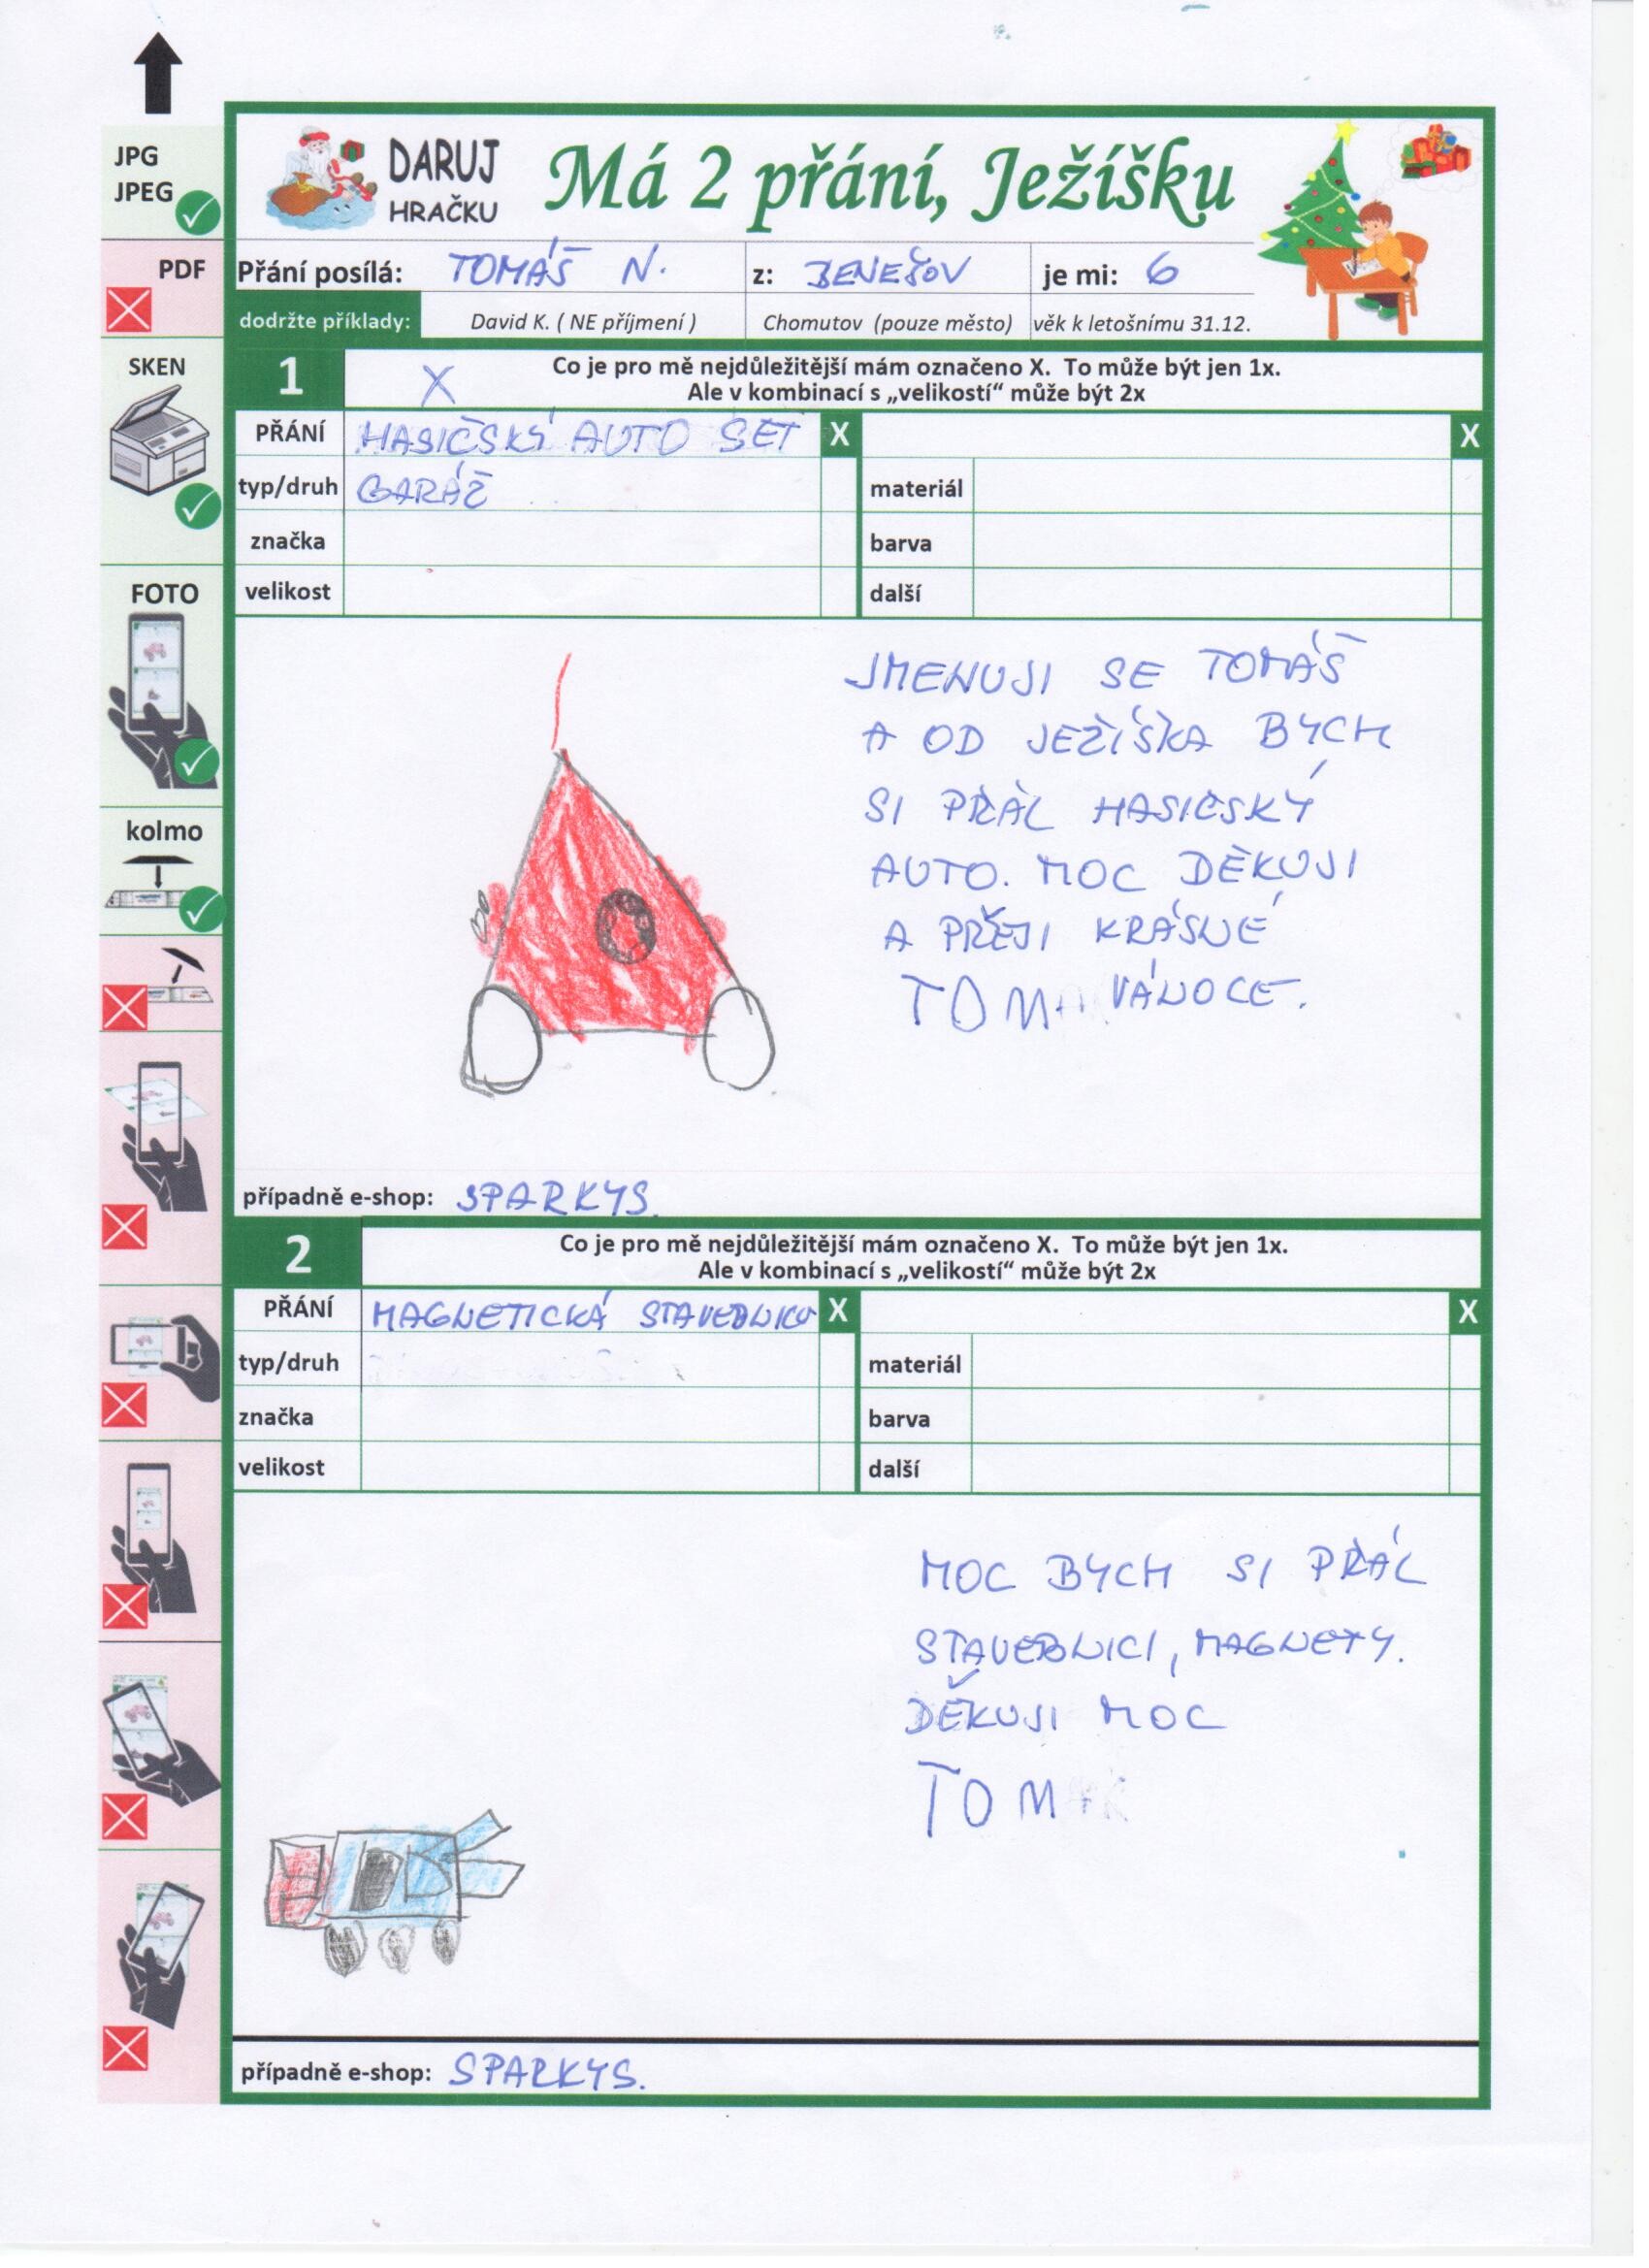 JPG
JPEG
PDF
SKEN
FOTO
kolmo
DARUJ
HRAČKU
Má 2 přání, Ježíšku
Přání posílá: TOMÁŠ N. z: BENEŠOV je mi: 6
dodržte příklady: David K. ( NE příjmení ) Chomutov (pouze město) věk k letošnímu 31.12.
1 X Co je pro mě nejdůležitější mám označeno X. To může být jen 1x.
Ale v kombinací s „velikostí“ může být 2x
PŘÁNÍ HASIČSKÝ AUTO SET X X
typ/druh GARÁŽ materiál
značka barva
velikost další
JMENUJI SE TOMÁŠ
A OD JEŽÍŠKA BYCH
SI PŘÁL HASIČSKÝ
AUTO. MOC DĚKUJI
A PŘEJI KRÁSNÉ
TOM VÁNOCE.
případně e-shop: SPARKYS.
2 Co je pro mě nejdůležitější mám označeno X. To může být jen 1x.
Ale v kombinací s „velikostí“ může být 2x
PŘÁNÍ MAGNETICKÁ STAVEBNICE X X
typ/druh materiál
značka barva
velikost další
MOC BYCH SI PŘÁL
STAVEBNICI, MAGNETY.
DĚKUJI MOC
TOM
případně e-shop: SPARKYS.